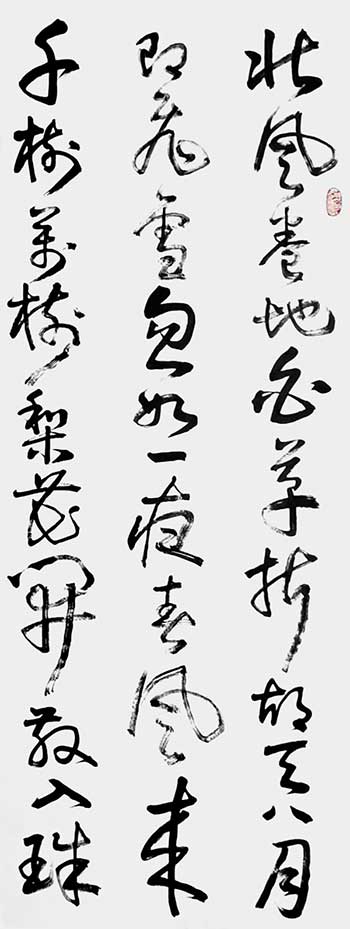 北風卷地白草折胡天八月
即飛雪忽如一夜春風來
千樹萬樹梨花開散入珠